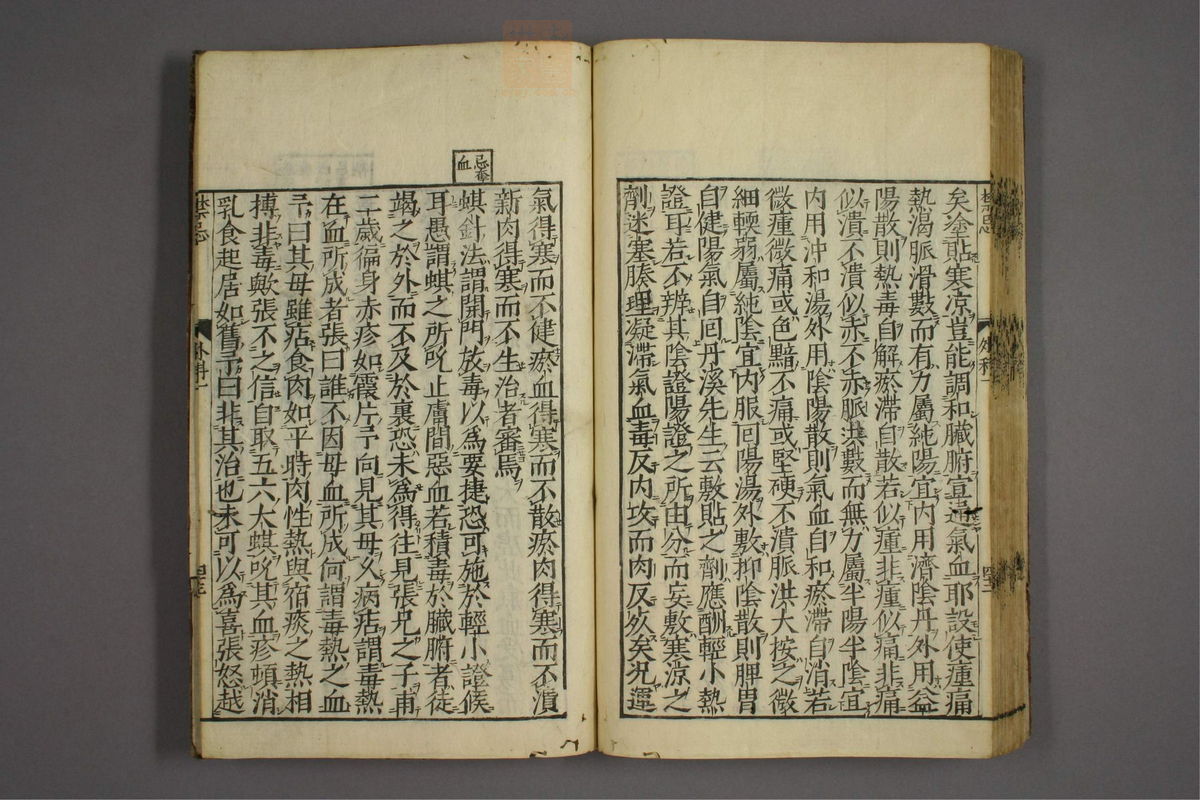 矣塗貼寒凉豈能調和臟腑宣通氣血耶設使瘇痛
熱渴脈滑數而有力屬純陽宜内用濟陰丹外用益
陽散則熱毒自解瘀滯自散若似瘇非瘇似痛非痛
似潰不潰似赤不赤脈洪數而無力屬半陽半陰宜
内用沖和湯外用陰陽散則氣血自和瘀滯自消若
微瘇微痛或色黯不痛或堅硬不潰脈洪大按之微
細輭弱屬純陰宜内服回陽湯外敷抑陰散則脾胃
自健陽氣自回丹溪先生云敷貼之劑應酬輕小熱
證耳若不辨其陰證陽證之所由分而妄敷寒凉之
劑迷塞腠理凝滯氣血毒反内攻而肉反死矣况運
氣得寒而不健瘀血得寒而不散瘀肉得寒而不潰
新肉得寒而不生治者審焉
忌毒血
蜞針法謂開門放毒以爲要捷恐可施於輕小證候
耳愚謂蜞之所吮止膚間惡血若積毒於臟腑者徒
竭之於外而不及於裏恐未爲得往見張兄之子甫
二歲徧身赤疹如霞片予向見其母久病痞謂毒熱
在血所成者張曰誰不因母血所成何謂毒熱之血
予曰其母雖痞食肉如平時肉性熱與宿痰之熱相
搏非毒歟張不之信自取五六大蜞吮其血疹頓消
乳食起居如舊予曰非其治也未可以爲喜張怒越
禁忌
外科一
外科一